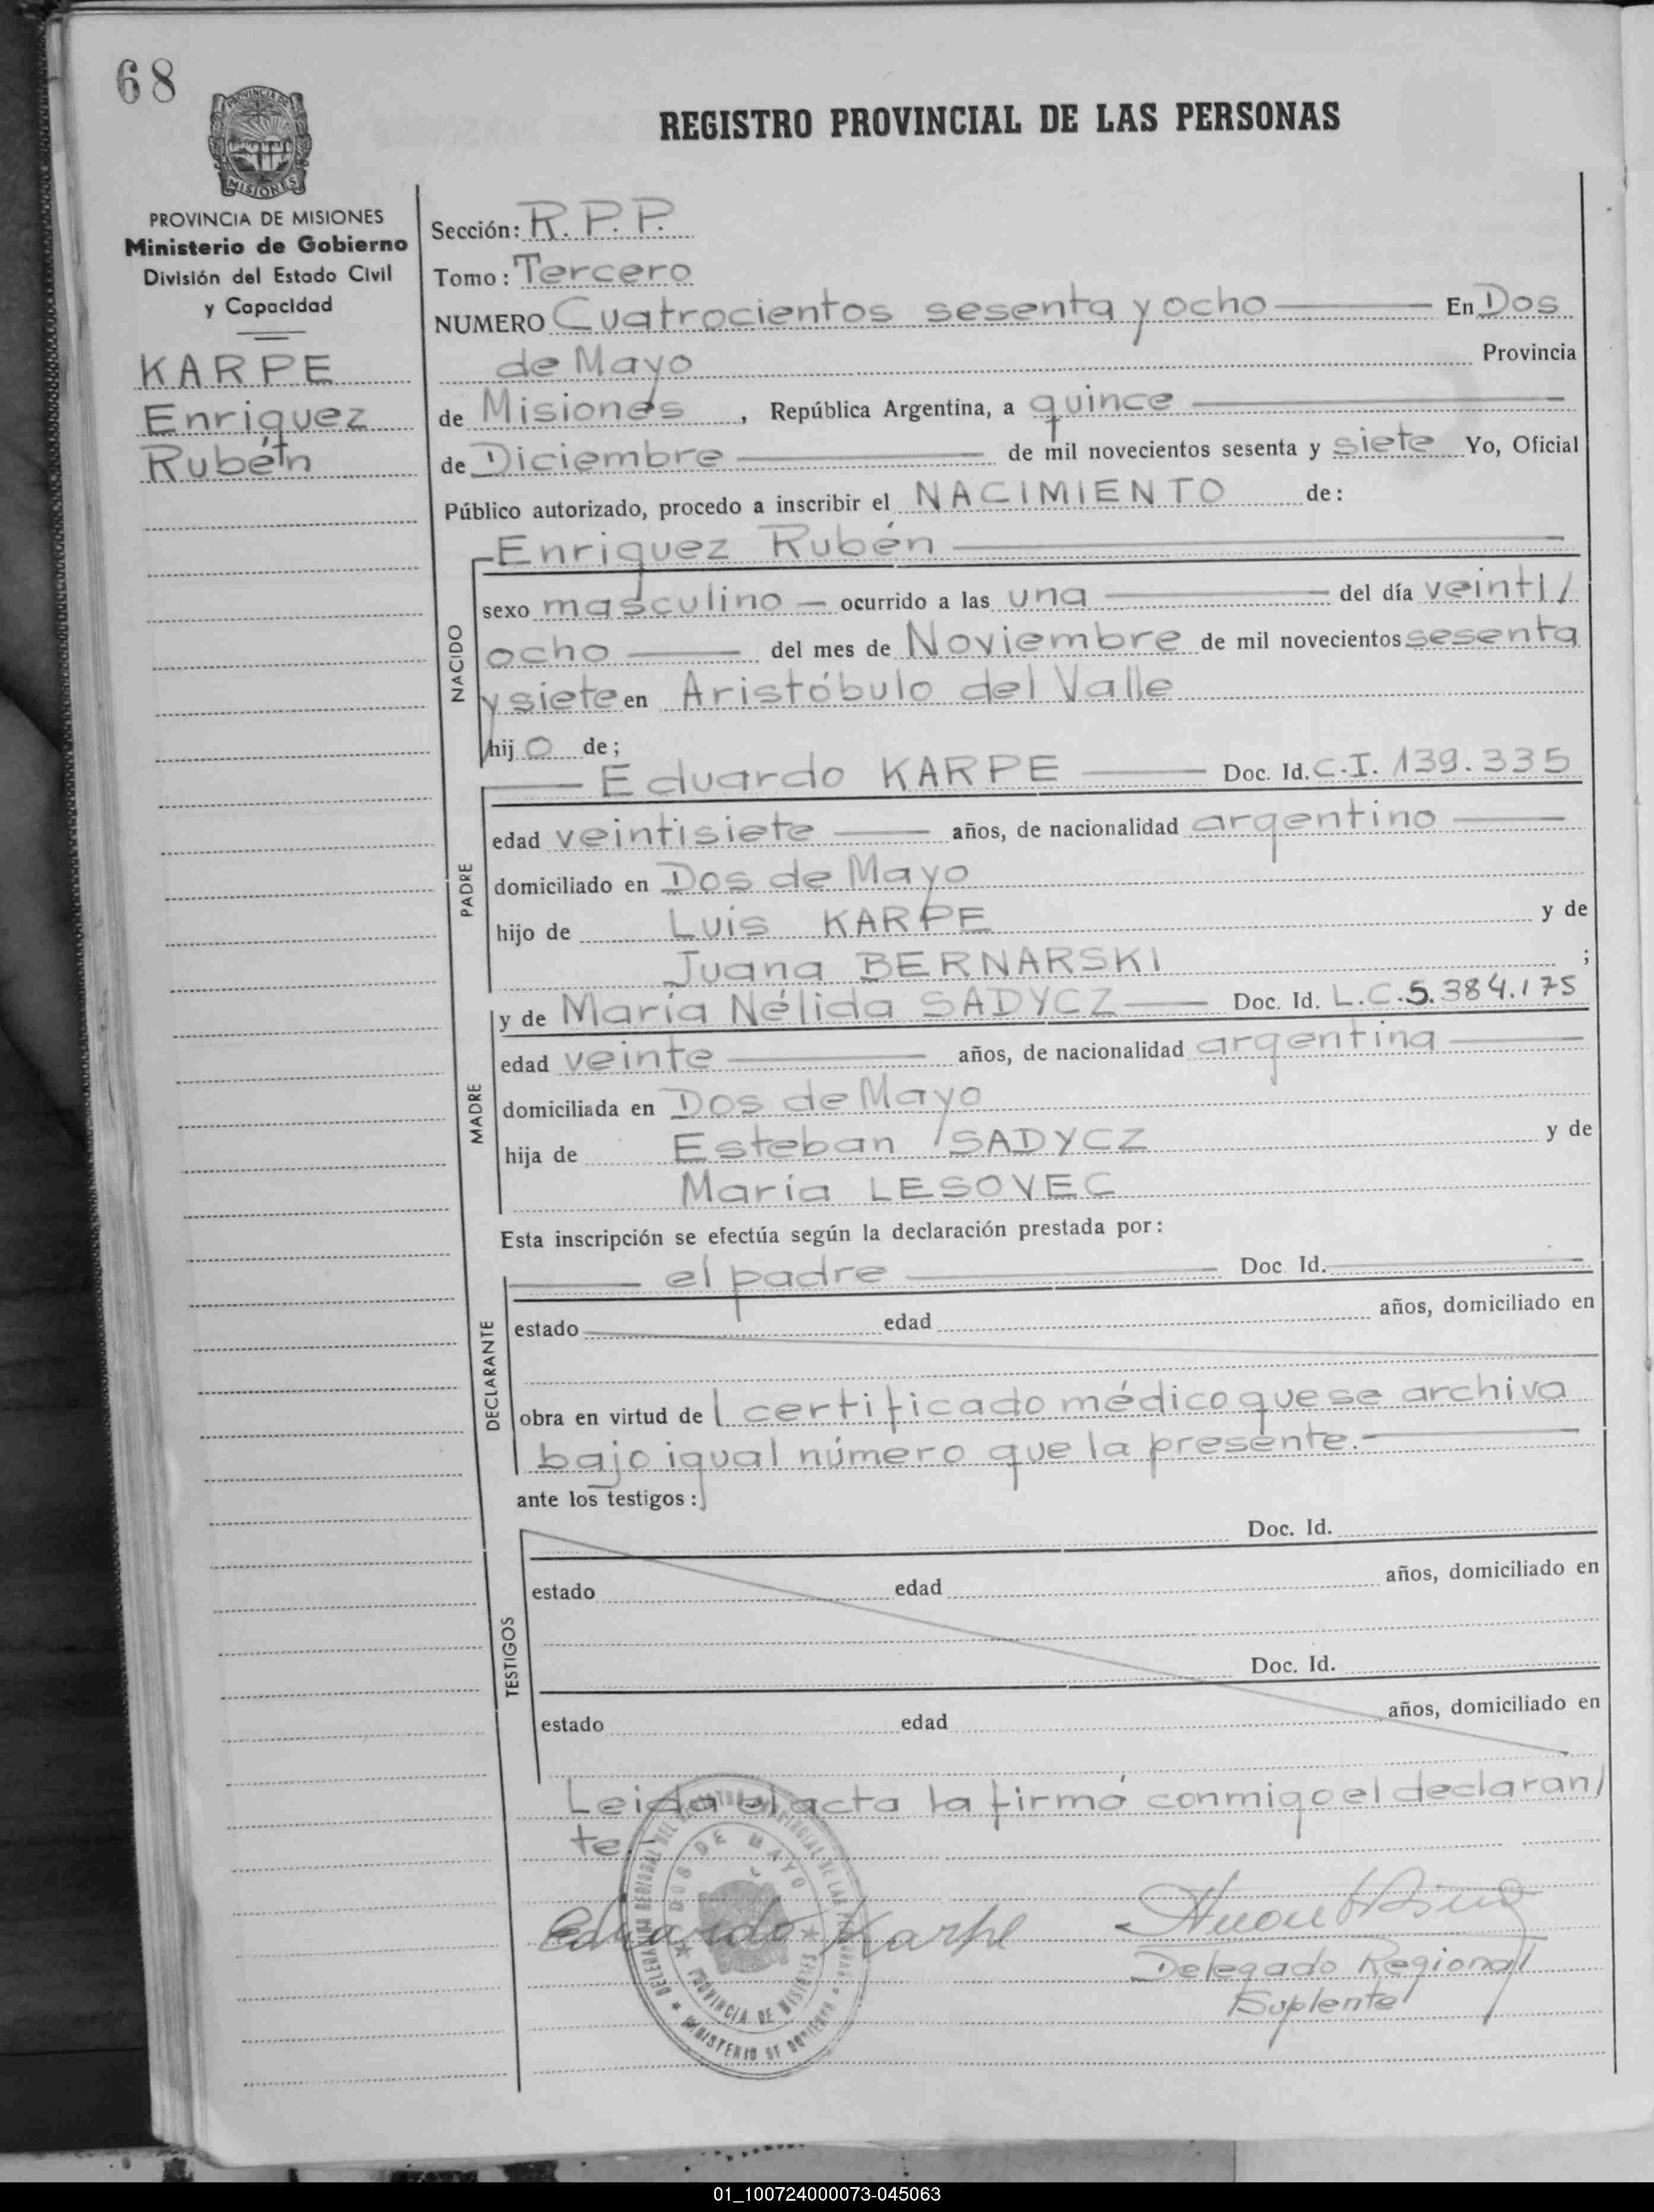 68
PROVINCIA DE
MISIONES
REGISTRO PROVINCIAL DE LAS PERSONAS
PROVINCIA DE MISIONES
Ministerio de Gobierno
División del Estado Civil
y Capacidad
KARPE
Enriquez
Rubén
Sección: R. P. P.
Tomo: Tercero
NUMERO Cuatrocientos sesenta y ocho — En Dos
de Mayo Provincia
de Misiones, República Argentina, a quince —
de Diciembre — de mil novecientos sesenta y siete Yo, Oficial
Público autorizado, procedo a inscribir el NACIMIENTO de:
NACIDO
Enriquez Rubén —
sexo masculino — ocurrido a las una — del día veinti/
ocho — del mes de Noviembre de mil novecientos sesenta
y siete en Aristóbulo del Valle
hijo de;
PADRE
— Eduardo KARPE — Doc. Id. C.I. 139.335
edad veintisiete — años, de nacionalidad argentino —
domiciliado en Dos de Mayo
hijo de Luis KARPE y de
Juana BERNARSKI ;
MADRE
y de María Nélida SADYCZ — Doc. Id. L.C. 5.384.175
edad veinte — años, de nacionalidad argentina —
domiciliada en Dos de Mayo
hija de Esteban SADYCZ y de
María LESOVEC
Esta inscripción se efectúa según la declaración prestada por:
DECLARANTE
— el padre — Doc. Id. —
estado edad años, domiciliado en
obra en virtud de l certificado médico que se archiva
bajo igual número que la presente. —
ante los testigos:
TESTIGOS
Doc. Id.
estado edad años, domiciliado en
Doc. Id.
estado edad años, domiciliado en
Leida el acta la firmó conmigo el declaran/
te.
DELEGACION REGIONAL DEL REGISTRO PROVINCIAL DE LAS PERSONAS
DOS DE MAYO
PROVINCIA DE MISIONES
MINISTERIO DE GOBIERNO
Eduardo Karpe
Delegado Regional
Suplente
01_100724000073-045063